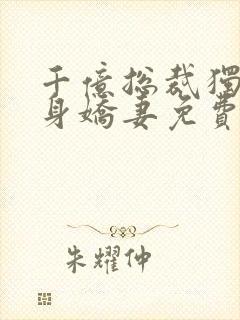 千億總裁獨
身嬌妻免費
朱耀仲